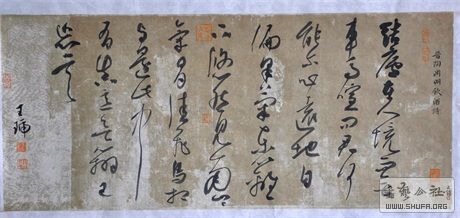 晉陶淵明飲酒詩
結廬在人境而無
車馬喧問君何
能爾心遠地自
偏采菊東籬
下悠然見南山
氣日夕佳飛鳥相
與還此中
有真意欲辨已
忘言
王
書法公社
WWW.SHUFA.ORG